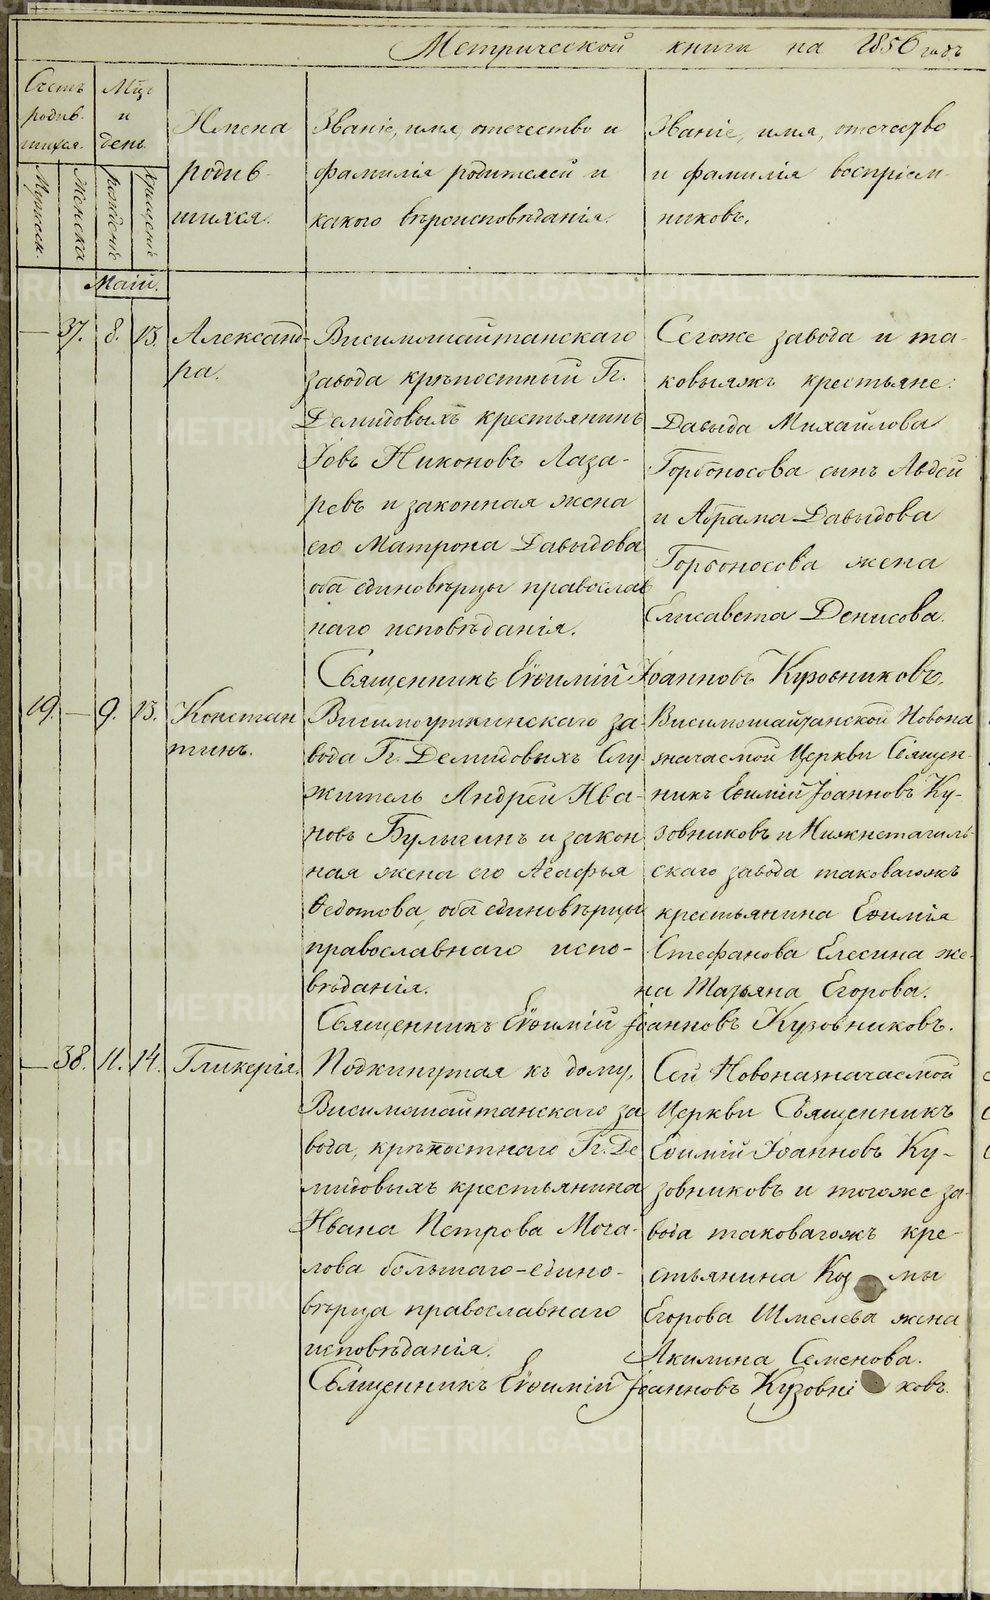 Метрической книги на 1856 годъ
Счетъ родив- шихся.
Мужеска.
Женска
Мцъ и день
рожденія
крещенія
Имена родив- шихся.
Званіе, имя, отечество и фамилія родителей и какого вѣроисповѣданія.
Званіе, имя, отечество и фамилія воспріем- никовъ.
Маій.
— 37. 8. 13.
Александ-
ра.
Висимошайтанскаго
завода крѣпостный Гг.
Демидовыхъ крестьянинъ
Іовъ Никоновъ Лаза-
ревъ и законная жена
его Матрона Давыдова
оба единовѣрцы православ
наго исповѣданія.
Сегоже завода и та-
ковыяжъ крестьяне:
Давыда Михайлова
Горбоносова сынъ Авдей
и Абрама Давыдова
Горбоносова жена
Елисавета Денисова.
Священникъ Евѳимій Іоанновъ Кузовниковъ.
19. — 9. 13.
Констан
тинъ.
Висимоуткинскаго за
вода Гг. Демидовыхъ Слу
житель Андрей Ива-
новъ Булыгинъ и закон
ная жена его Агафья
Ѳедотова, оба единовѣрцы
православнаго испо-
вѣданія.
Висимошайтанской Новона
значаемой Церкви Священ-
никъ Евѳимій Іоанновъ Ку-
зовниковъ и Нижнетагиль
скаго завода таковагожъ
крестьянина Евѳимія
Стефанова Елесина же-
на Татьяна Егорова.
Священникъ Евѳимій Іоанновъ Кузовниковъ.
— 38. 11. 14.
Гликерія.
Подкинутая къ дому,
Висимошайтанскаго за
вода, крѣпостнаго Гг. Де
мидовыхъ крестьянина
Ивана Петрова Моча-
лова большаго-едино-
вѣрца православнаго
исповѣданія.
Сей Новоназначаемой
Церкви Священникъ
Евѳимій Іоанновъ Ку-
зовниковъ и тогоже за-
вода таковагожъ кре-
стьянина Коз мы
Егорова Шмелева жена
Акилина Семенова.
Священникъ Евѳимій Іоанновъ Кузовни ковъ.
METRIKI.GASO-URAL.RU